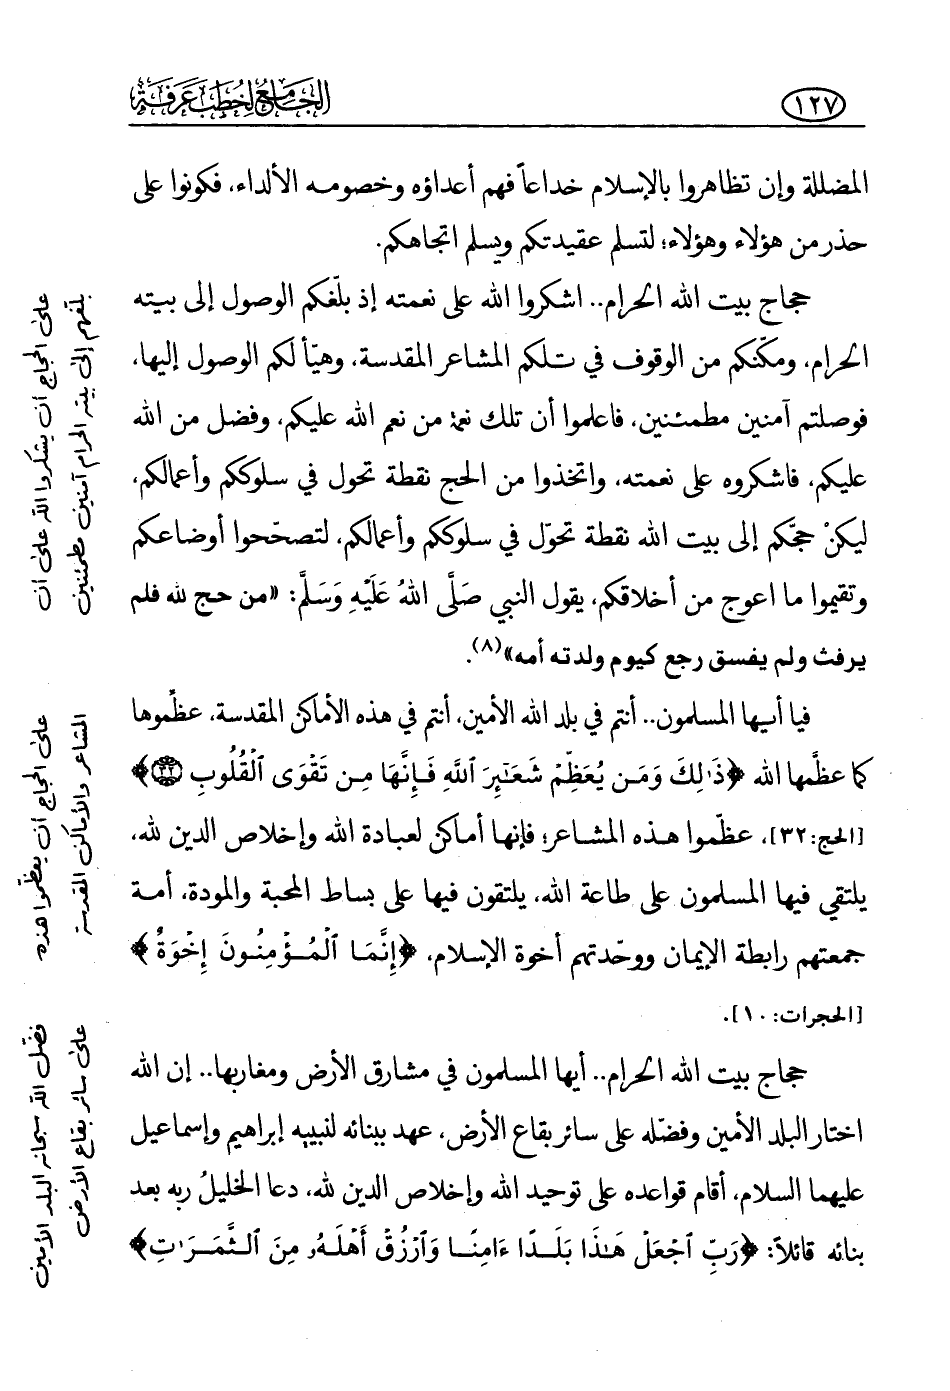 ١٢٧
الجامع لخطب عرفة
المضللة وإن تظاهروا بالإسلام خداعاً فهم أعداؤه وخصومه الألداء، فكونوا على
حذر من هؤلاء وهؤلاء؛ لتسلم عقيدتكم ويسلم اتجاهكم.
حجاج بيت الله الحرام.. اشكروا الله على نعمته إذ بلّغكم الوصول إلى بيته
الحرام، ومكّنكم من الوقوف في تلكم المشاعر المقدسة، وهيّأ لكم الوصول إليها،
فوصلتم آمنين مطمئنين، فاعلموا أن تلك نعمة من نعم الله عليكم، وفضل من الله
عليكم، فاشكروه على نعمته، واتخذوا من الحج نقطة تحول في سلوككم وأعمالكم،
ليكنْ حجّكم إلى بيت الله نقطة تحوّل في سلوككم وأعمالكم، لتصحّحوا أوضاعكم
وتقيموا ما اعوج من أخلاقكم، يقول النبي صَلَّى اللهُ عَلَيْهِ وَسَلَّمَ: «من حج لله فلم
يرفث ولم يفسق رجع كيوم ولدته أمه»(٨).
فيا أيها المسلمون.. أنتم في بلد الله الأمين، أنتم في هذه الأماكن المقدسة، عظّموها
كما عظَّمها الله ﴿ذَٰلِكَ وَمَن يُعَظِّمْ شَعَـٰٓئِرَ ٱللَّهِ فَإِنَّهَا مِن تَقْوَى ٱلْقُلُوبِ ٣٢﴾
[الحج:٣٢]، عظّموا هذه المشاعر؛ فإنها أماكن لعبادة الله وإخلاص الدين لله،
يلتقي فيها المسلمون على طاعة الله، يلتقون فيها على بساط المحبة والمودة، أمة
جمعتهم رابطة الإيمان ووحّدتهم أخوة الإسلام، ﴿إِنَّمَا ٱلْمُؤْمِنُونَ إِخْوَةٌ﴾
[الحجرات:١٠].
حجاج بيت الله الحرام.. أيها المسلمون في مشارق الأرض ومغاربها.. إن الله
اختار البلد الأمين وفضّله على سائر بقاع الأرض، عهد ببنائه لنبييه إبراهيم وإسماعيل
عليهما السلام، أقام قواعده على توحيد الله وإخلاص الدين لله، دعا الخليلُ ربه بعد
بنائه قائلاً: ﴿رَبِّ ٱجْعَلْ هَـٰذَا بَلَدًا ءَامِنًا وَٱرْزُقْ أَهْلَهُۥ مِنَ ٱلثَّمَرَٰتِ﴾
على الحجاج ان يشكروا الله على ان
بلغهم إلى بيته الحرام آمنين مطمئنين
على الحجاج ان يعظّموا هذه
المشاعر والأماكن المقدسة
فضّل الله سبحانه البلد الأمين
على سائر بقاع الأرض